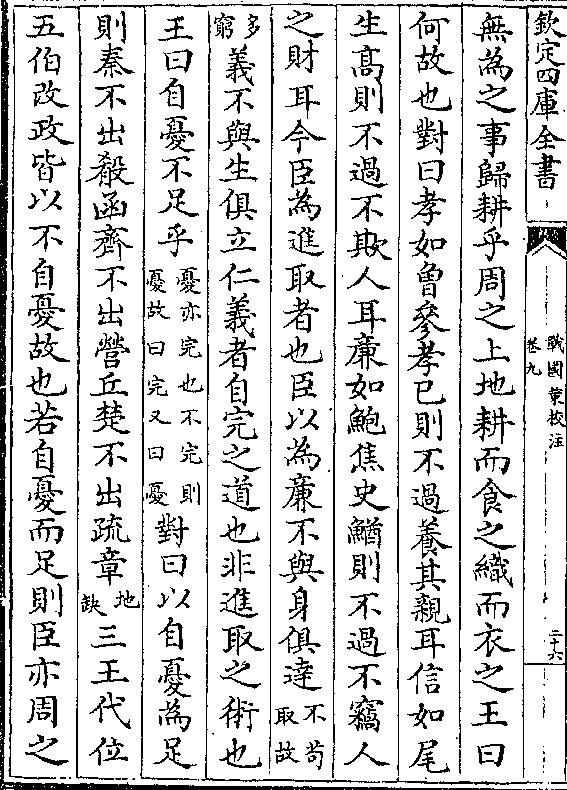 欽定四庫全書
戰國策校注
卷九
二十六
無為之事歸耕乎周之上地耕而食之織而衣之王曰
何故也對曰孝如曾參孝已則不過養其親耳信如尾
生髙則不過不欺人耳亷如鮑焦史鰌則不過不竊人
之財耳今臣為進取者也臣以為亷不與身俱達不苟取故
多窮義不與生俱立仁義者自完之道也非進取之術也
王曰自憂不足乎憂亦完也不完則憂故曰完又曰憂對曰以自憂為足
則秦不出殽函齊不出營丘楚不出疏章地缺三王代位
五伯改政皆以不自憂故也若自憂而足則臣亦周之